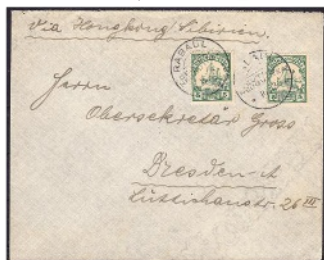 via Hongkong/Sibirien.
RABAUL
5 5
Herrn
Obersekretär Gross
Dresden-A
Lüttichaustr. 26 III